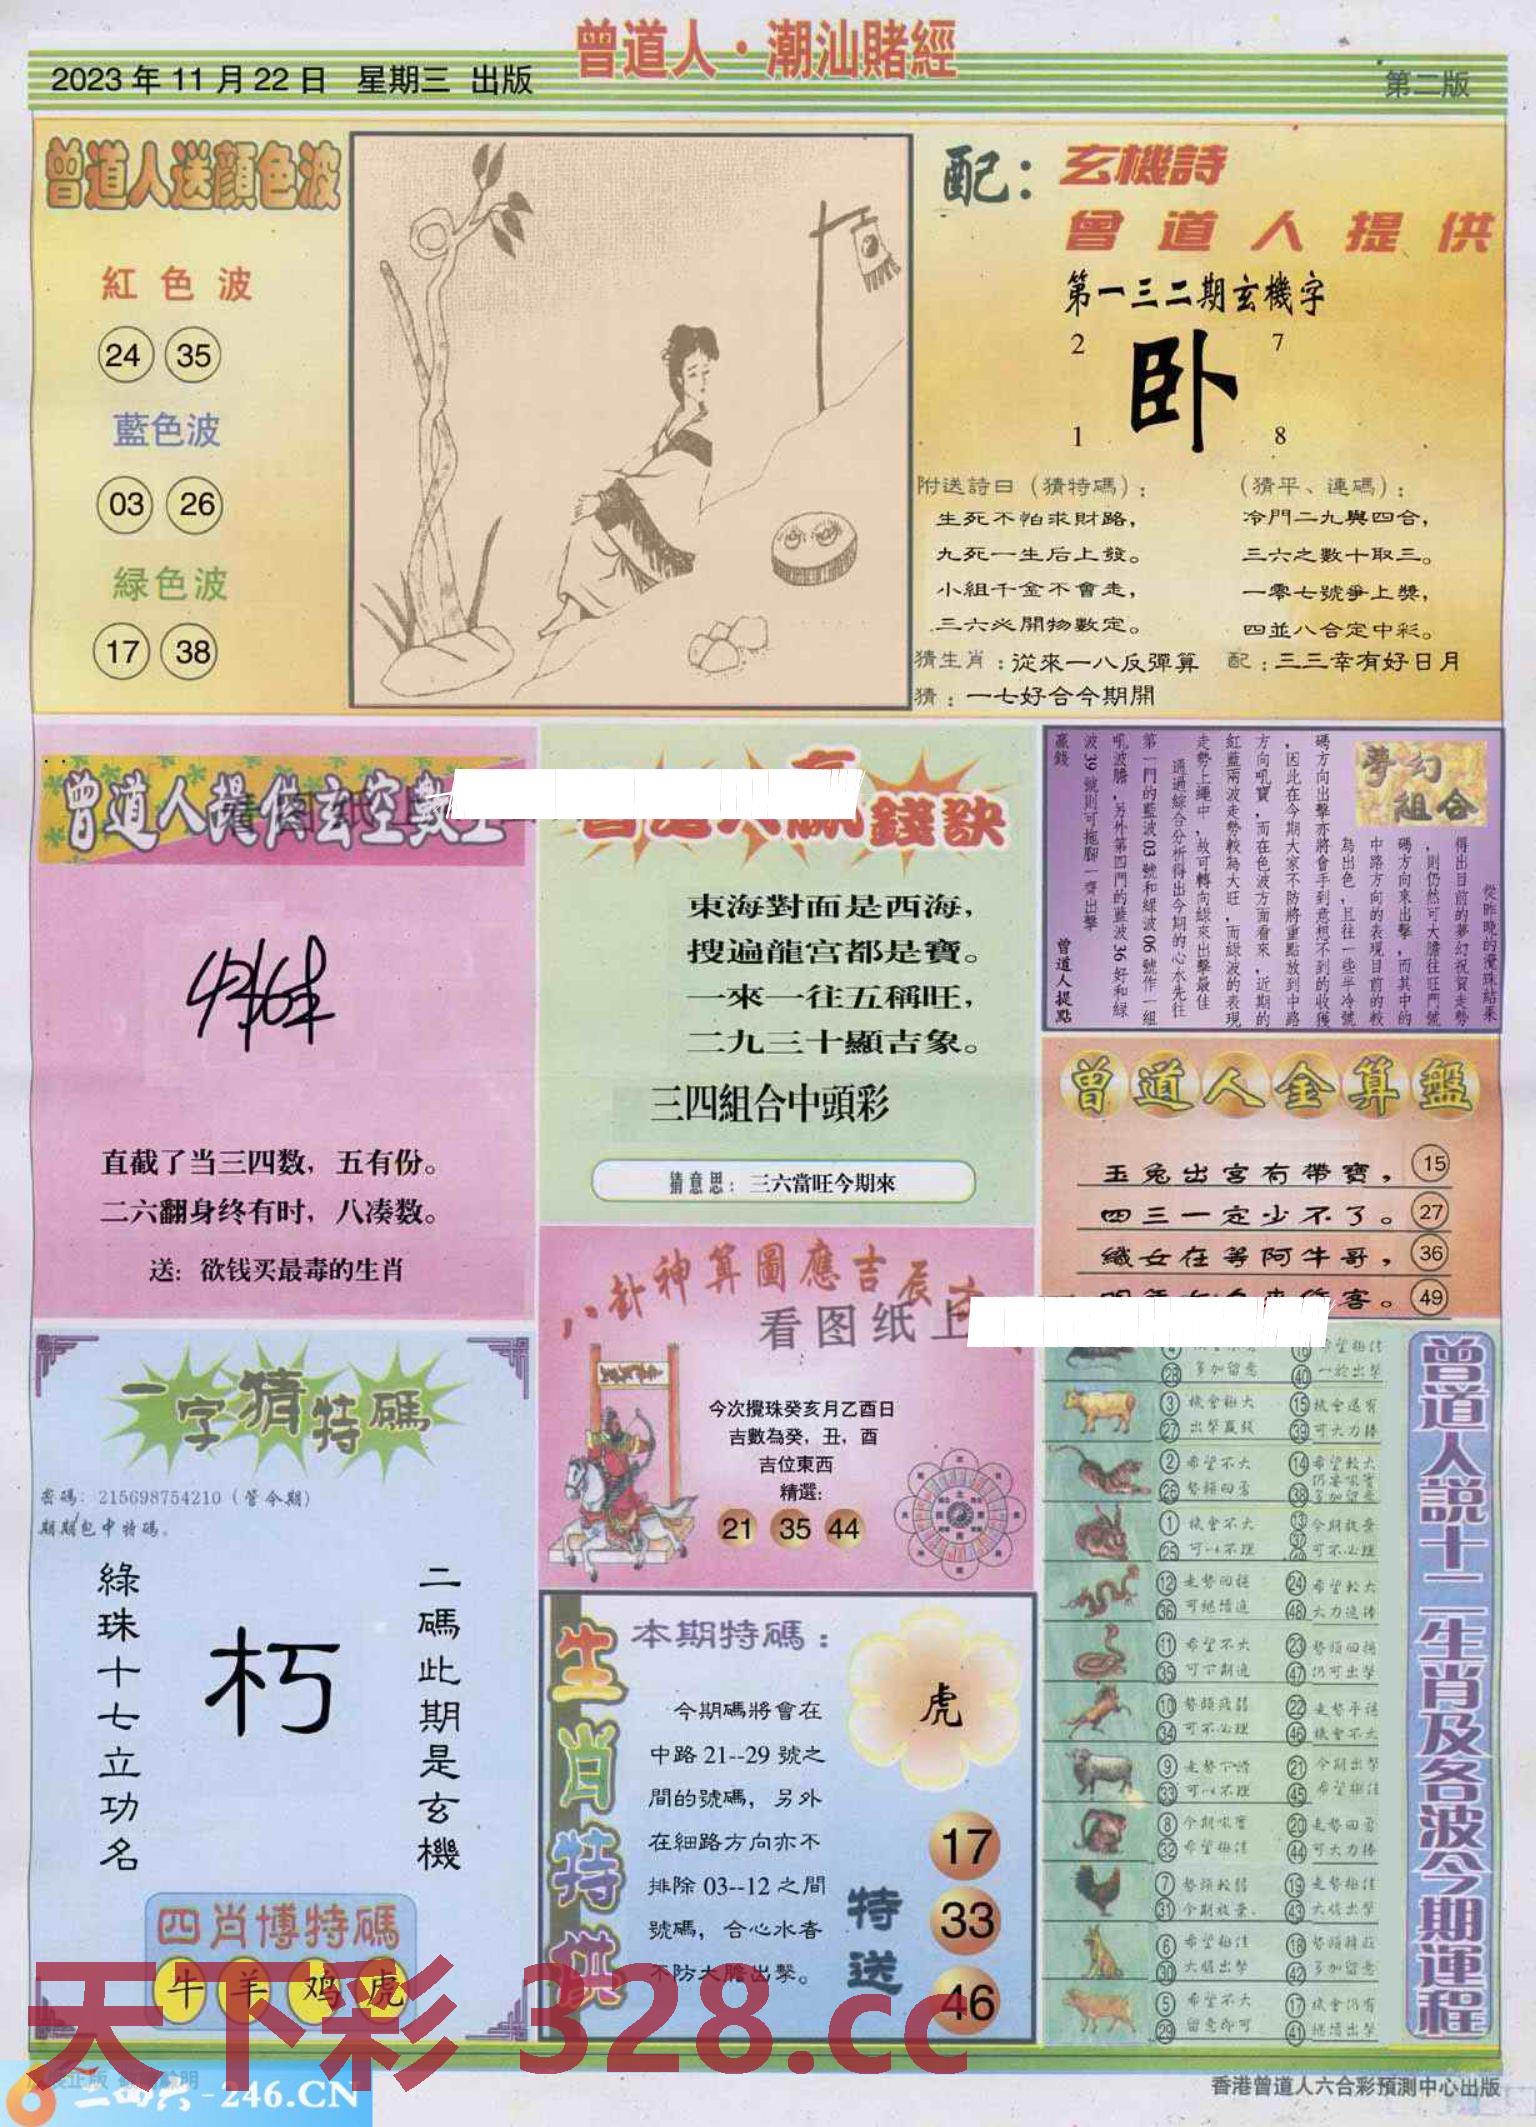 曾道人·潮汕賭經
2023年11月22日 星期三 出版
第二版
曾道人送顔色波
紅色波
24 35
藍色波
03 26
緑色波
17 38
配：玄機詩
曾道人提供
第一三二期玄機字
2 7
卧
1 8
附送詩日（猜特碼）：
生死不怕求財路，
九死一生后上發。
小組千金不會走，
三六必開物數定。
（猜平、連碼）：
冷門二九與四合，
三六之數十取三。
一零七號爭上獎，
四並八合定中彩。
猜生肖：從來一八反彈算 配：三三幸有好日月
猜：一七好合今期開
曾道人提供玄空數
直截了当三四数，五有份。
二六翻身终有时，八凑数。
送：欲钱买最毒的生肖
錢訣
東海對面是西海，
搜遍龍宫都是寶。
一來一往五稱旺，
二九三十顯吉象。
三四組合中頭彩
猜意思：三六當旺今期來
夢幻組合
從昨晚的攪珠結果
得出目前的夢幻祝賀走勢
，則仍然可大膽往旺門號
碼方向來出擊，而其中的
中路方向的表現目前的較
為出色，且往一些半冷號
碼方向出擊亦將會手到意想不到的收獲
，因此在今期大家不防將重點放到中路
方向吼寶，而在色波方面看來，近期的
紅藍兩波走勢較為大旺，而綠波的表現
走勢上繩中，故可轉向綠來出擊最佳
通過綜合分析得出今期的心水先往
第一門的藍波03號和綠波06號作一組
吼波膽，另外第四門的藍波36好和綠
波39號則可拖腳一齊出擊
贏錢
曾道人提點
曾道人金算盤
玉兔出宮有帶寶， 15
四三一定少不了。 27
織女在等阿牛哥， 36
客。 49
八卦神算圖應吉辰
看图纸上
今次攪珠癸亥月乙酉日
吉數為癸，丑，酉
吉位東西
精選：
21 35 44
一字猜特碼
密碼：215698754210（管今期）
期期包中特碼。
綠珠十七立功名
朽
二碼此期是玄機
四肖博特碼
牛 羊 鸡 虎
生肖特供
本期特碼：
今期碼將會在
中路21--29號之
間的號碼，另外
在細路方向亦不
排除03--12之間
號碼，合心水者
不防大膽出擊。
虎
特送
17
33
46
曾道人説十二生肖及各波今期運程
4 16 希望極佳
28 多加留意 40 一於出擊
3 機會極大 15 機會還有
27 出擊贏錢 39 可大力捧
2 希望不大 14 希望較大
26 勢頭回勇 38 多加留意
1 機會不大 13 今期放棄
25 可以不理 37 可不必理
12 走勢回穩 24 希望較大
36 可繼續追 48 大力追捧
11 希望不大 23 勢頭回穩
35 47 仍可出擊
10 勢頭疲弱 22 走勢平穩
34 可不必理 46 機會不大
9 走勢下滑 21 今期出擊
33 可以不理 45 希望極佳
8 今期吼寶 20 走勢回勇
32 希望極佳 44 可大力捧
7 勢頭較弱 19 走勢極佳
31 今期放棄 43 大膽出擊
6 希望極佳 18
30 大膽出擊 42 多加留意
5 希望不大 17 機會仍有
29 留意即可 41 繼續出擊
天下彩 328.cc
二四六-246.CN
香港曾道人六合彩預測中心出版